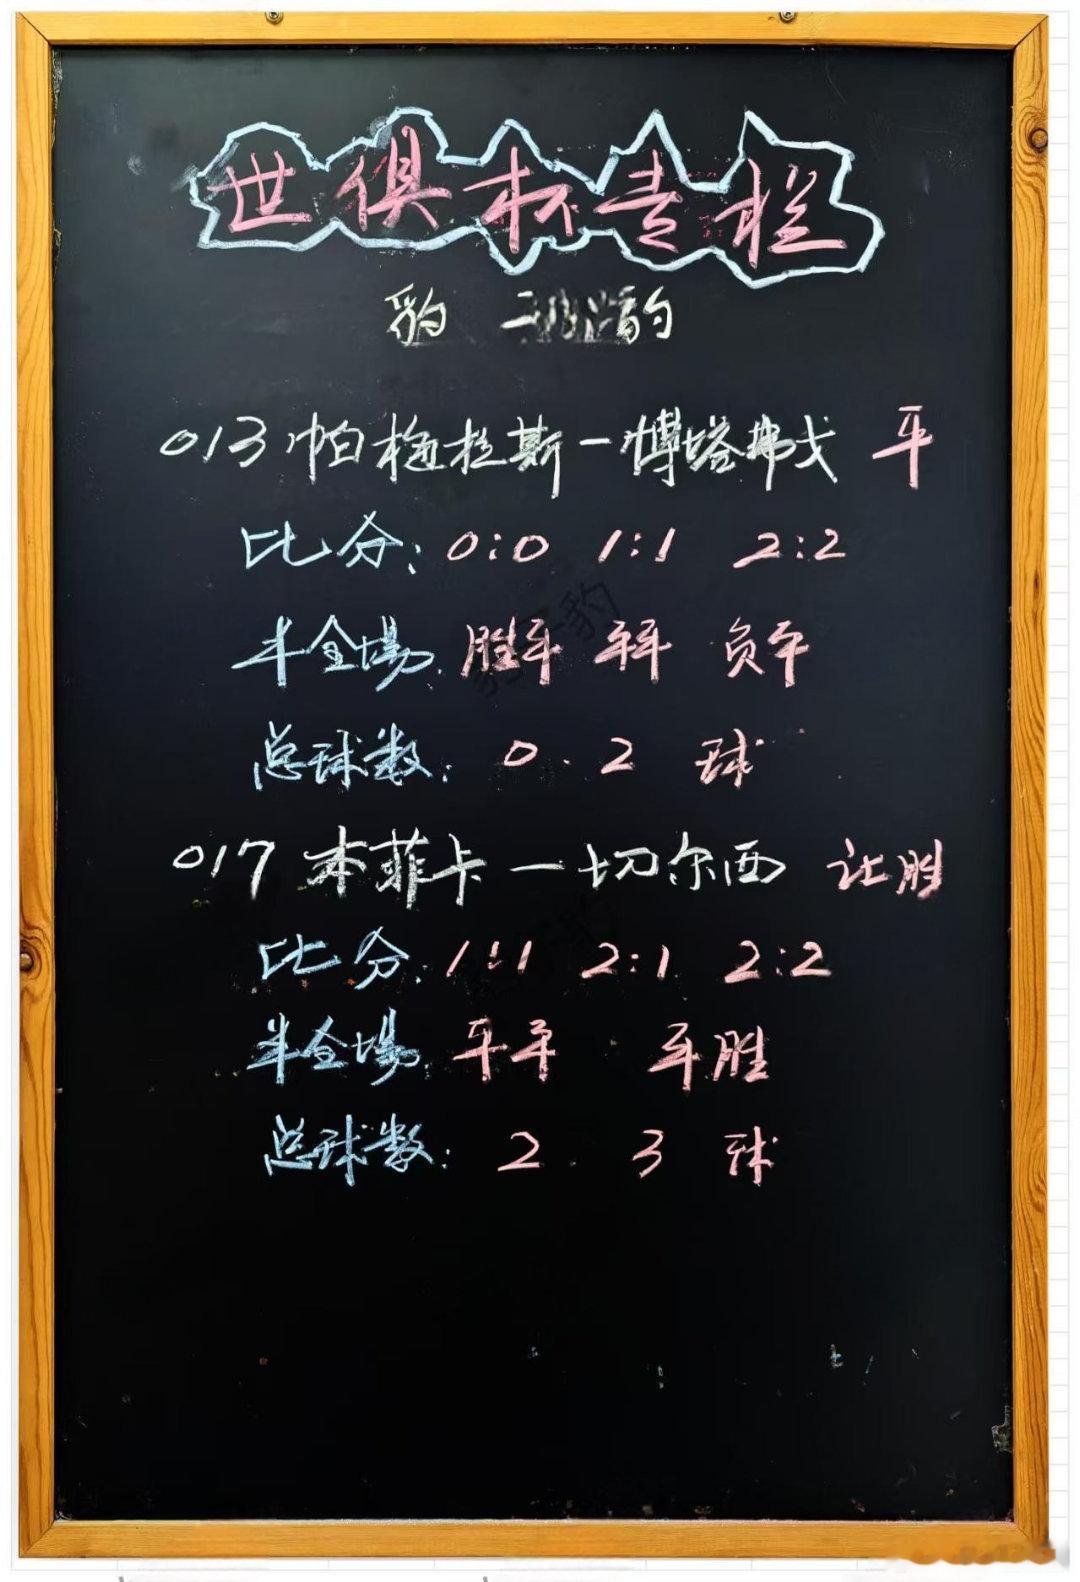 世俱杯专栏
豹 豹
013 帕梅拉斯一博塔弗戈 平
比分: 0:0 1:1 2:2
半全場: 胜平 平平 负平
总球数: 0.2 球
017 本菲卡一切尔西 让胜
比分: 1:1 2:1 2:2
半全場: 平平 平胜
总球数: 2.3 球